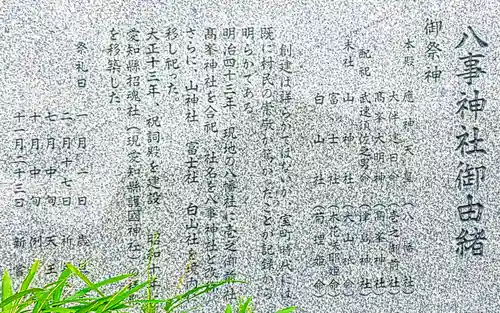 八事神社御由緒
御祭神
本殿 應神天皇(八幡社)
大伴連日命(壱之御前社)
高峯大明神(高峯神社)
配祀 武速須佐之男命(津島神社)
末社 山神社(大山祇命)
富士社(木花咲耶姫命)
白山社(菊理姫命)
創建は詳らかではないが、室町時代には
既に村民の崇敬が篤かったことが記録から
明らかである。
明治四十三年、現地の八幡社に壱之御前社
高峯神社を合祀 社名を八事神社と改
さらに、山神社 富士社 白山社を境内
移し祀った。
大正十三年、祝詞殿を建設 昭和十年
愛知縣招魂社(現愛知縣護國神社)
を移築した。
祭礼日 一月一日 歳
二月十七日 祈
七月中旬 天王
十月中旬 例
十一月二十三日 新嘗